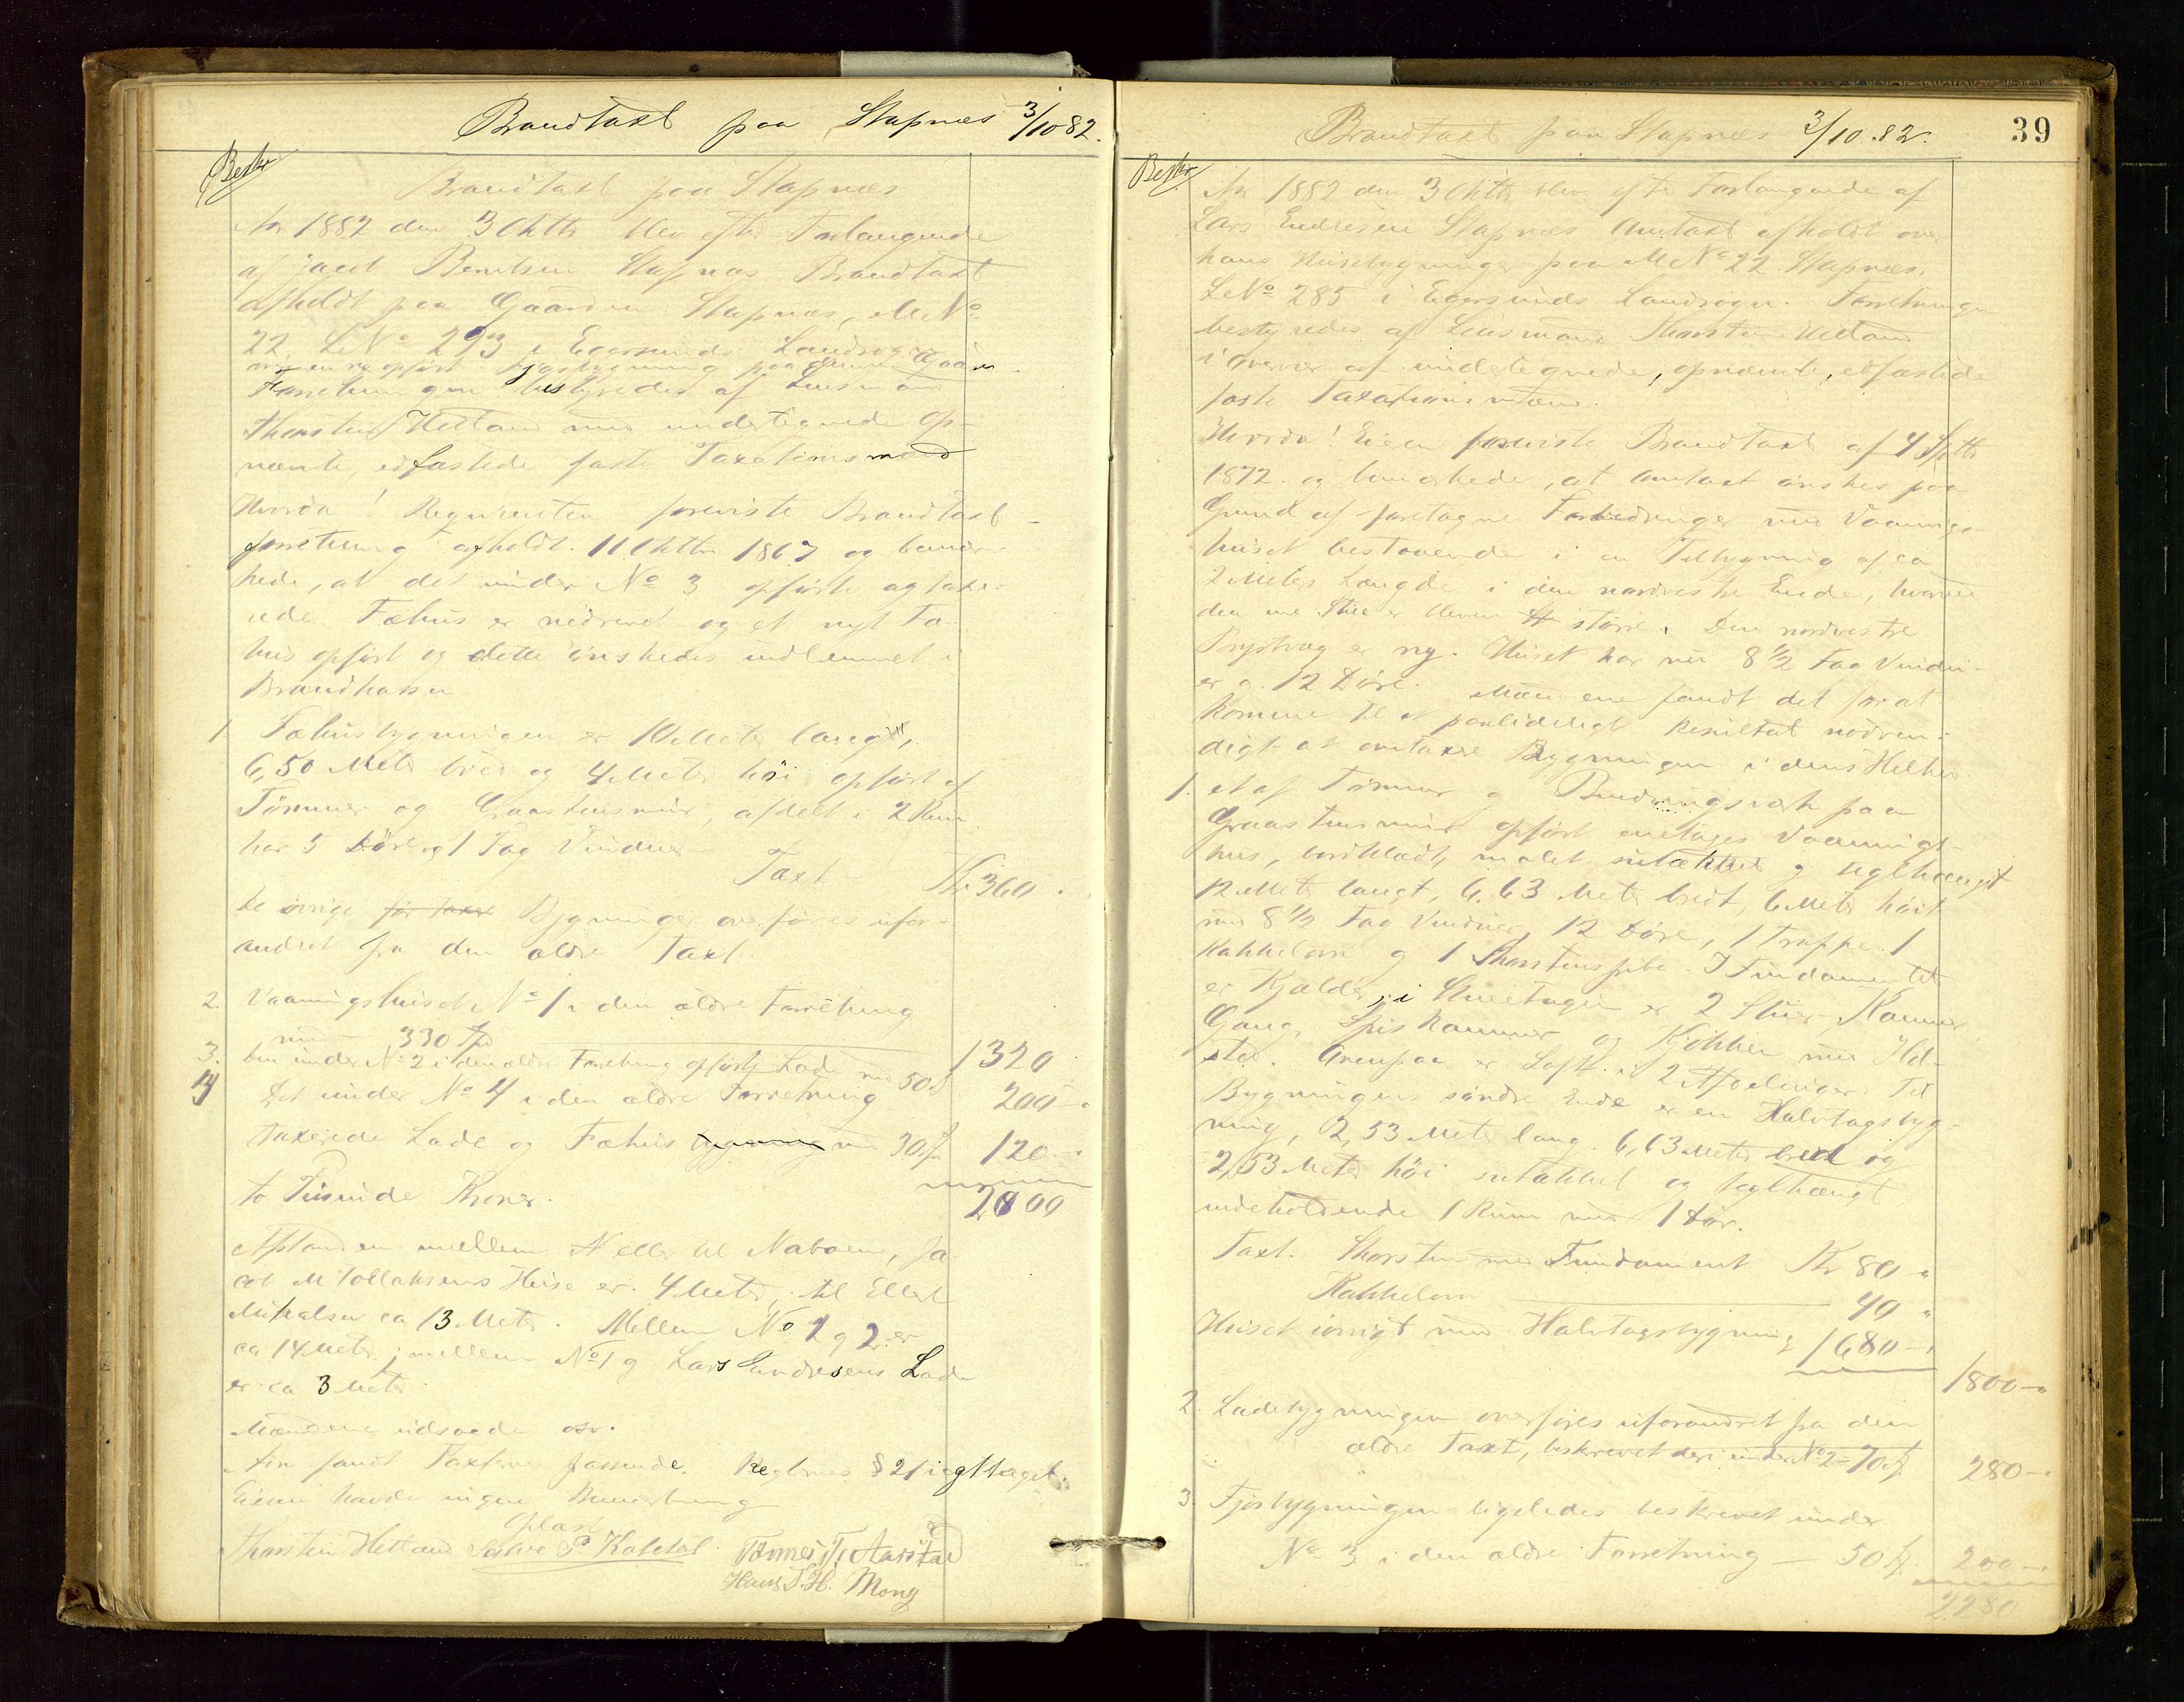 Brandtaxt paa Stapnæs 3/10 82.
Beskr
Brandtaxt paa Stapnæs
Aar 1882 den 3 Oktbr blev efter Forlangende
af Jacob Berntsen Stapnæs Brandtaxt
afholdt paa Gaarden Stapnæs, M No
22 L No 293 i Egersunds Landsogn
en ny opført bygning paa Gaarden.
Forretningen bestyredes af Lensmand
Thorsten Hetland med undertegnede op-
nævnte, edfæstede faste Taxationsmænd
Hvorda! Reqvirenten foreviste Brandtaxt-
forretning afholdt 11 Oktbr 1867 og bemær-
kede, at det under No 3 opførte og taxe-
rede Fæhus er nedrevet og et nyt Fæ-
hus opført og dette ønskedes indlemmet i
Brandkassen
1. Fæhusbygningen er 10 Meter lang,
6,50 Meter bred og 4 Meter høi opført af
Tømmer og Graastensmur, afdelt i 2 Rum
har 5 Døre og 1 Fag Vinduer
Taxt Kr 360 "
De øvrige før taxer Bygninger overføres ufor-
andret fra den ældre Taxt.
2. Vaaningshuset No 1 i den ældre Forretning
med 330 Spd 1320
3. Den under No 2 i den ældre Forretning opførte Lade med 50 Spd 200 "
4 Det under No 4 i den ældre Forretning
taxerede Lade og Fæhus bygning med 30 Spd 120 "
to Tusinde Kroner. 2000
Afstanden mellem N eller til Naboen, Ja-
cob M Tollaksens Huse er 4 Meter, til Ellert
Mikalsen ca 13 Meter. Mellem No 1 og 2 er
ca 14 Meter, mellem No 1 og Lars Endresens Lade
er ca 3 Meter.
Mændene udsagde osv.
fandt Taxterne passende. Reglernes § 21 iagttaget.
Eieren havde ingen Bemærkning
Thorsten Hetland Salve P. Koldal Tønnes T. Aarstad
Hans S. H. Mong
Brandtaxt paa Stapnæs 3/10 .82. 39
Beskr
Aar 1882 den 3 Oktbr blev efter Forlangende af
Lars Endresen Stapnæs Omtaxt afholdt over
hans Husebygninger paa M No 22 Stapnæs,
L No 285 i Egersunds Landsogn. Forretningen
bestyredes af Lensmand Thorsten Hetland
i Overvær af undertegnede, opnævnte, edfæstede
faste Taxationsmænd.
Hvorda! Eieren foreviste Brandtaxt af 4 Septbr
1872 og bemærkede, at Omtaxt ønskes paa
Grund af foretagne Forbedringer med Vaanings-
huset bestaaende i en Tilbygning af ca
2 Meters Længde i den nordvestre Ende, hvorved
den ene Stue er bleven større. Den nordvestre
Brystvæg er ny. Huset har nu 8 1/2 Fag Vindu-
er og 12 Døre. Mændene fandt det for at
komme til et paalideligt Resultat nødven-
digt at omtaxere Bygningen i dens Helhed.
1. et af Tømmer og Bindingsværk paa
Graastensmur opført enetages Vaanings-
hus, bordklædt, malet sutækket og teglhængt
12 Meter langt, 6,63 Meter bredt, 6 Meter høit
med 8 1/2 Fag Vinduer, 12 Døre, 1 Trappe, 1
Kakkelovn og 1 Skorstenspibe. I Fundamentet
er Kjælder, i Stueetagen er 2 Stuer, Kammer
Gang, Spiskammer og Kjøkken med Ild-
sted. Ovenpaa er Loft i 2 Afdelinger. Til
Bygningens søndre Ende er en Halvtagsbyg-
ning, 2,53 Meter lang, 6,63 Meter bred og
2,53 Meter høi sutækket og teglhængt
indeholdende 1 Rum med 1 Dør.
Taxt. Skorsten med Fundament Kr 80 "
Kakkelovn 40 "
Huset øvrigt med Halvtagsbygning 1680 "
1800 "
2. Ladebygningen overføres uforandret fra den
ældre Taxt, beskrevet deri under No 2 - 70 Spd 280 "
3. Fjøsbygningen ligeledes beskrevet under
No 3 i den ældre Forretning - 50 Spd 200 "
2280